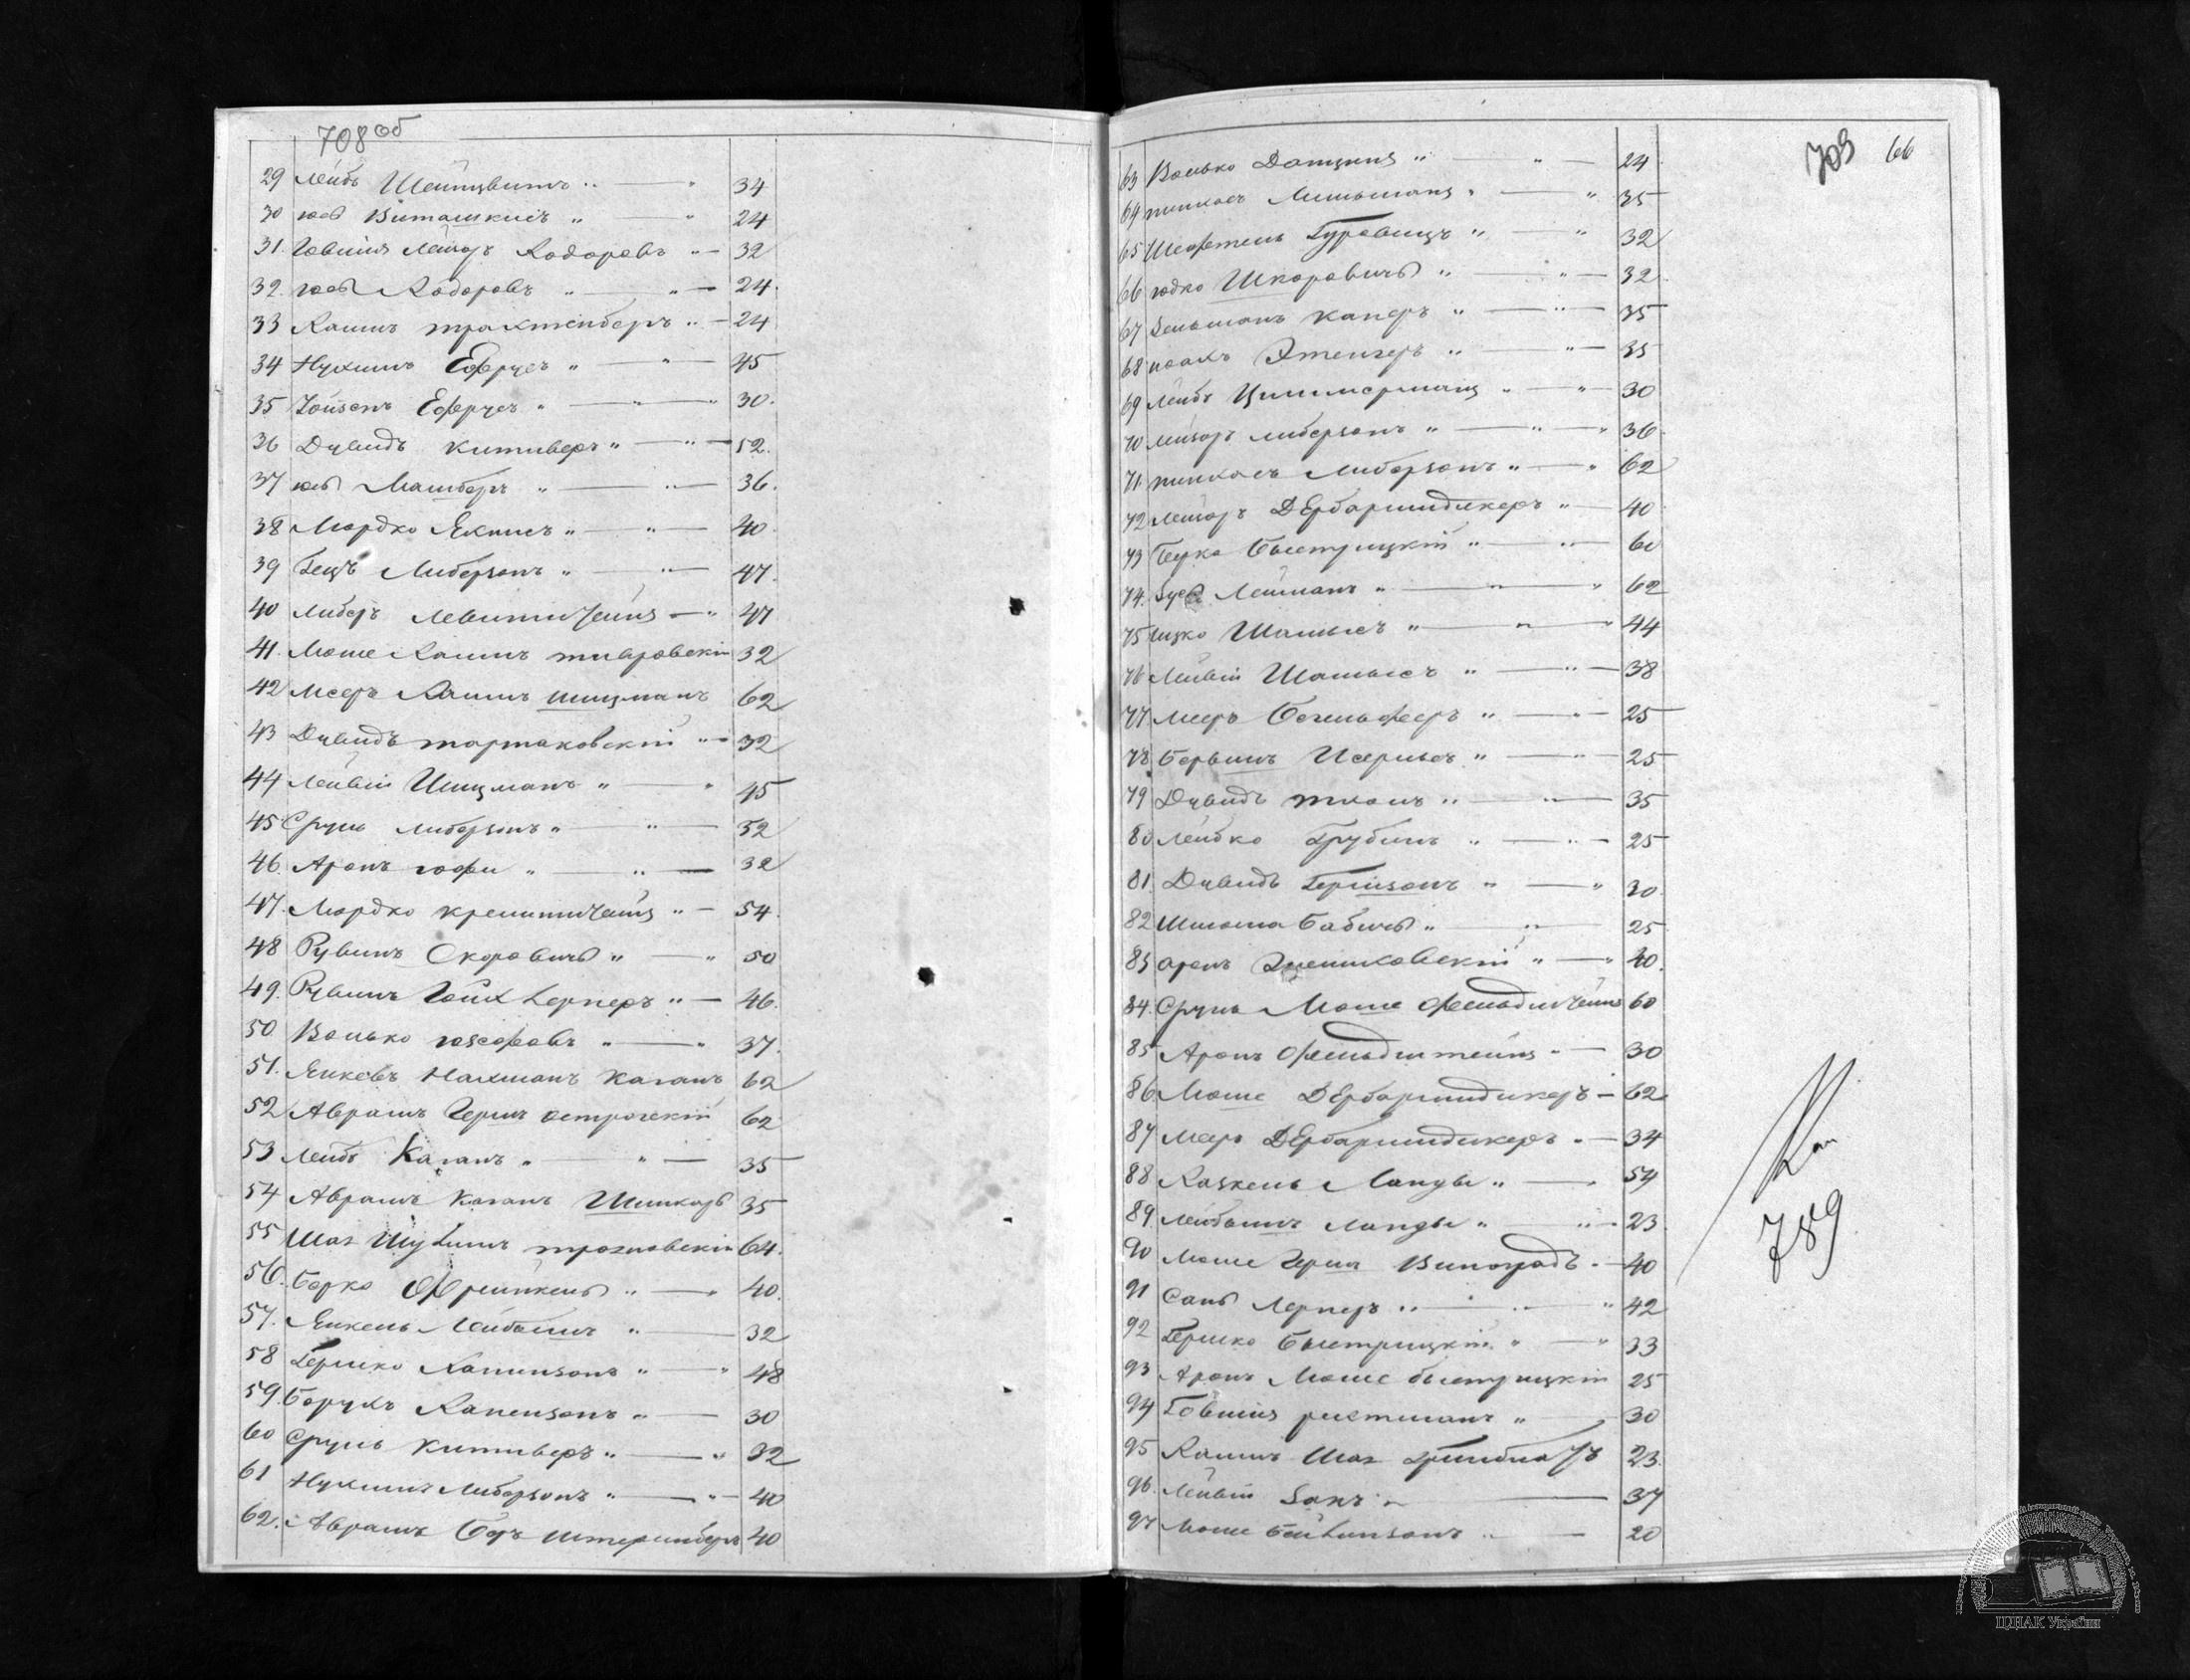 708 об
29 Лейбъ Шейнцвитъ " — " 34
30 юсь Виташкисъ " — " 24
31. Говшия Лейзоръ Ходоровъ " — 32
32. юсь Ходоровъ " — " — 24.
33 Хаимъ трахтенберъ " — 24
34 Нухимъ Ефрусъ " — " — 45
35 Іойзепъ Ефрусъ " — " — " 30.
36 Дувидъ китиверъ " — " — 52.
37 юсь Машберъ " — " — 36.
38 Мордко Якнисъ " — " — 40.
39 Гецъ Либерзонъ " — " — 47.
40 Либеръ Левитштейнъ — " 47
41. Моше Хаимъ тивровскій 32
42 Мееръ Хаимъ шицманъ 62
43 Дувидъ тартаковскій " — 32
44 Лейвій Шицманъ " — " 45
45 Сруль Либерзонъ " — " — 52
46. Аронъ гофи " — " — 32
47. Мордко кремитштейнъ " — 54.
48 Рувинъ Скоровичъ " — " 50
49. Рувинъ Гойхлернеръ " — 46.
50 Волько юзефовъ " — " 37.
51. Янкевъ Нахманъ каганъ 62
52 Аврамъ Гершъ острогскій 62
53 Лейбъ Каганъ " — " — 35
54 Аврамъ каганъ Шинкарь 35
55 Шая Шулимъ трояновскій 64.
56. Берко Френкель " — " 40.
57. Янкель Лейбышъ " — 32
58 Гершко Хаимзонъ " — " 48
59. Борухъ Капензонъ " — 30
60 Сруль китиверъ " — " 32
61 Нухимъ Либерзонъ " — " — 40
62. Аврамъ Беръ штеренберъ 40
709 66
63 Волько Дацкия " — " — 24
64 пинхасъ Литманъ " — " 35
65 Шефтель Гуровицъ " — " 32
66 юдко Шкоровичъ " — " — 32
67 Зельманъ каперъ " — " — 35
68 исакъ Этенгеръ " — " — 35
69 Лейбъ Циммерманъ " — " 30
70 Лейзоръ либерзонъ " — " — " 36
71. пинхасъ Либерзонъ " — " 62
72 Лейзоръ ДЕрбаримдикеръ " — 40
73 Берко Быстрицкій " — " — 60
74. Зусь Лейманъ " — " — " 62
75 ицко Шамысъ " — " — " 44
76 Лейвій Шамысъ " — " — 38
77 Мееръ Богельферъ " — " — 25
78 Бервишъ Исерисъ " — " 25
79 Дувидъ ткачъ " — " — 35
80 Лейбко Грубинъ " — " — 25
81. Дувидъ Гершзонъ " — " 30.
82 Шлиома Бабичъ " — " — 25
83 аронъ Змешковскій " — " 40.
84. Сруль Моше Фельдштейнъ 60
85 Аронъ Фельдштейнъ " — 30
86 Моше ДЕрбаримдикеръ — 62
87 Меер ДЕрбаримдикеръ " — 34
88 Хаскель Ланды " — 54
89. Лейбышъ Ланды " — " — 23.
90 Моше Гершъ Виноградъ. — 40
91 Сань Лернеръ " — " — " 42
92 Гершко Быстрицкій " — " 33
93 Аронъ Моше быстрицкій 25
94 Говшия рихтманъ " — 30
95 Хаимъ Шая Гринблатъ 23.
96. Лейвій Закъ " — 37
97 Моше Бейлинзонъ " — 20
789
ЦДІАК України